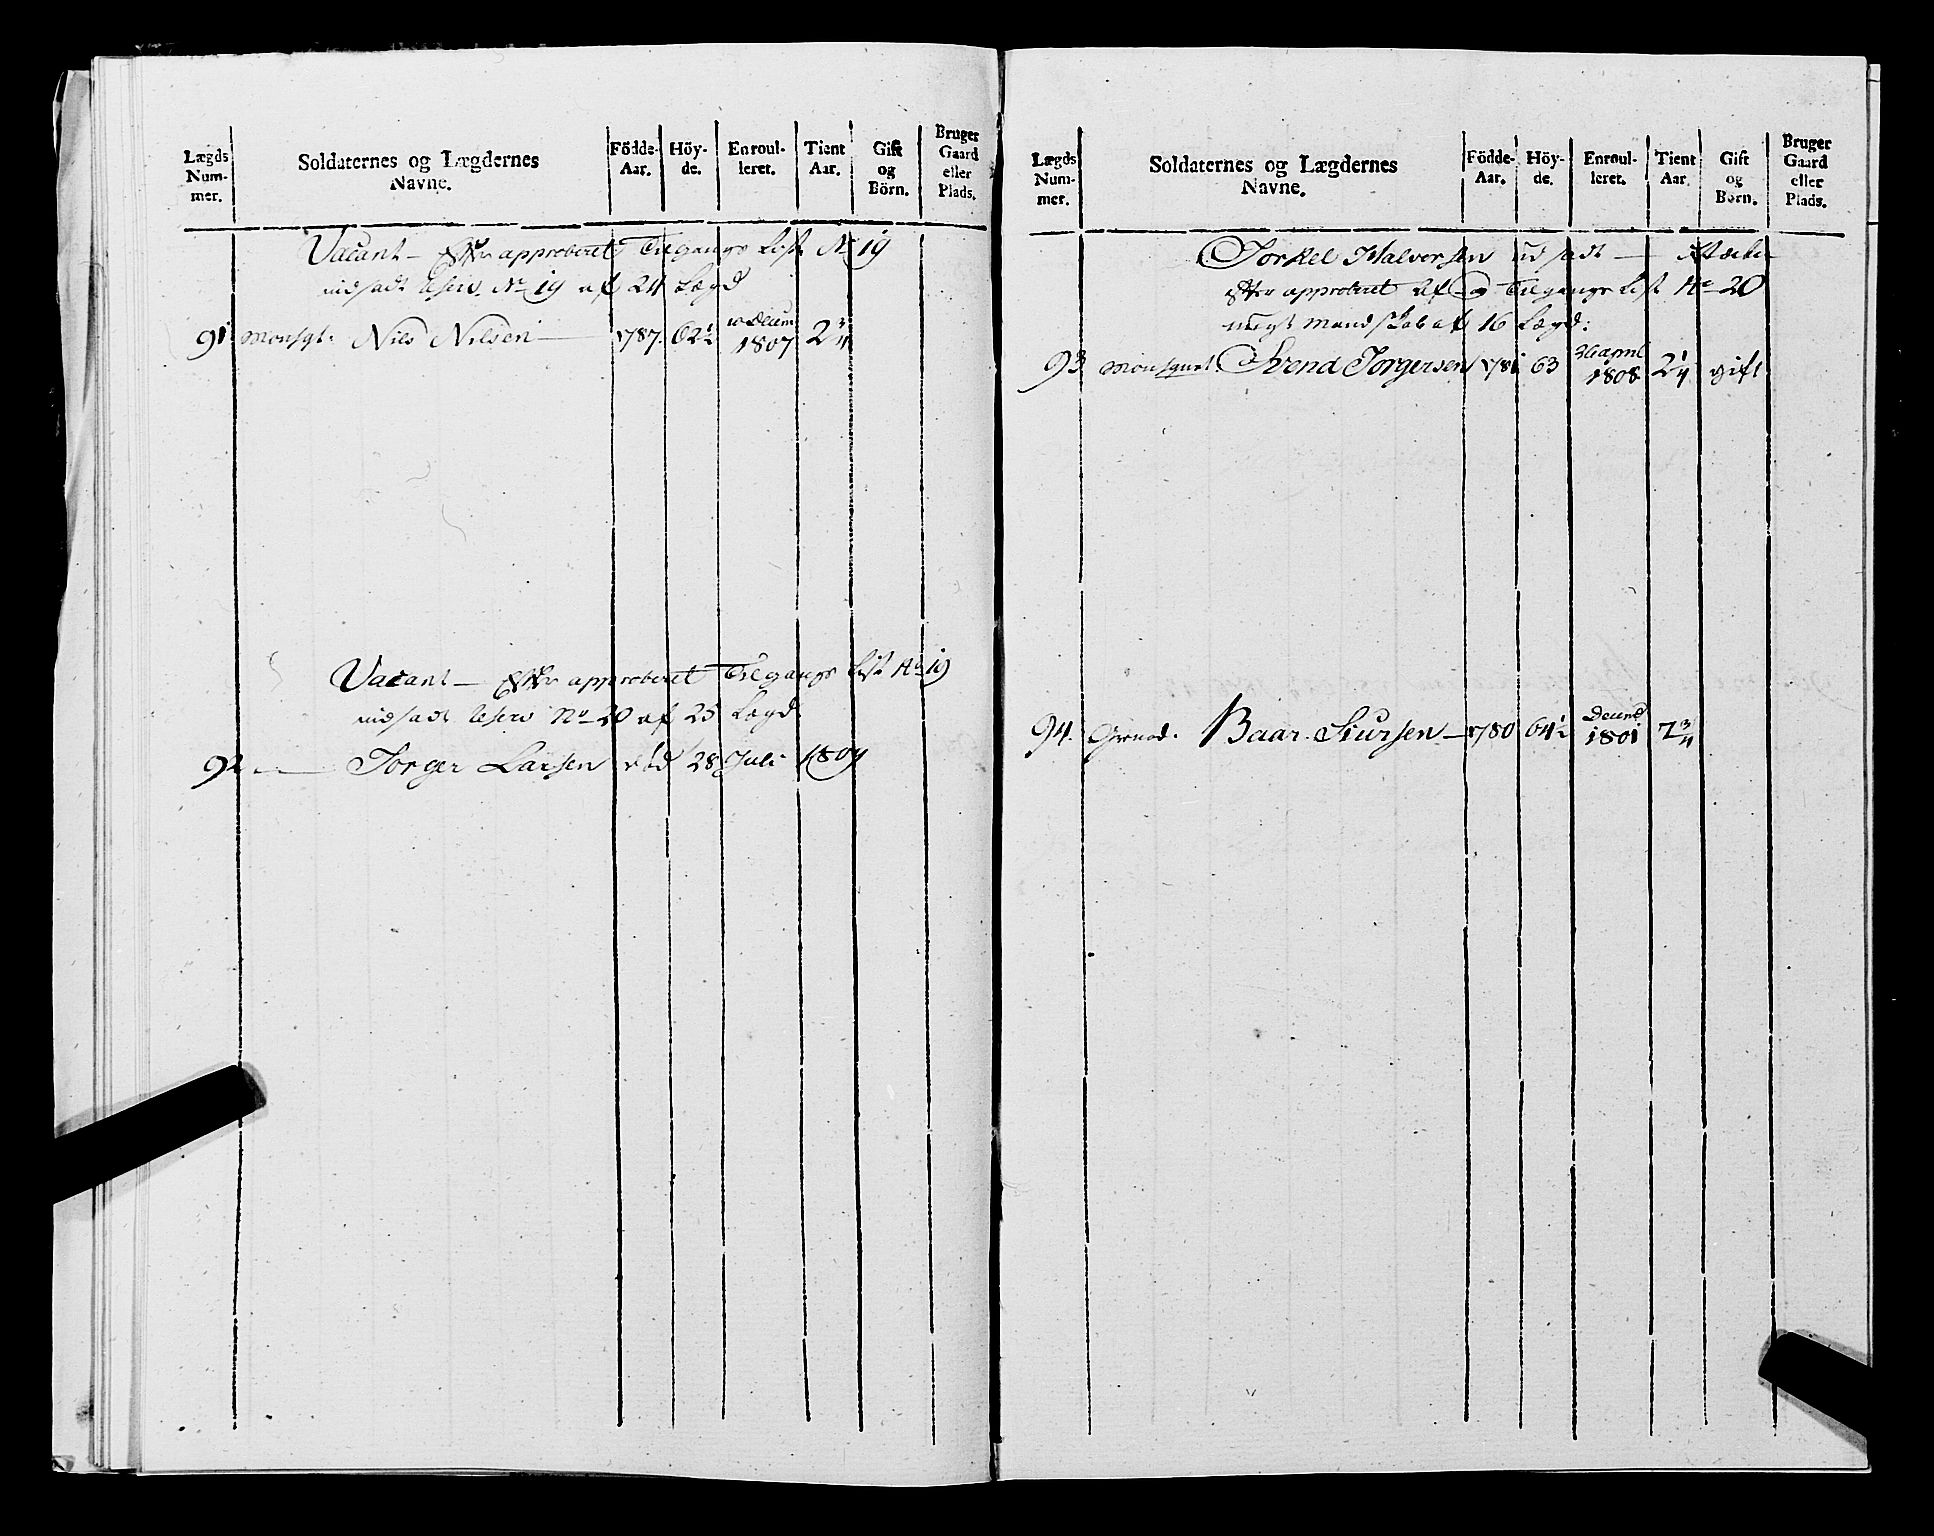 Lægds Num- mer.
Soldaternes og Lægdernes Navne.
Födde- Aar.
Höy- de.
Enroul- leret.
Tient Aar.
Gift og Börn.
Bruger Gaard eller Plads.
Vacant - Efter approberet Tilgangs List No 19
indsadt No 19 af 24 Lægd
91 Monsqt: Nils Nilsen 1787. 62½ 10 Decem 1807 2¾
Vacant - Efter approberet Tilgangs List No 19
indsadt No 20 af 25 Lægd
92 Torger Larsen død 28 Juli 1809
Lægds Num- mer.
Soldaternes og Lægdernes Navne.
Födde- Aar.
Höy- de.
Enroul- leret.
Tient Aar.
Gift og Börn.
Bruger Gaard eller Plads.
Torkel Halvorsen udsadt
efter approberet Tilgangs List No 20
Mandskab af 16 Lægd:
93 Monsquet. Svend Torgersen 1781 63 26 April 1808 2¼ gift
94. Grenad. Baar Siursen 1780 64½ Decemb 1801 7¾